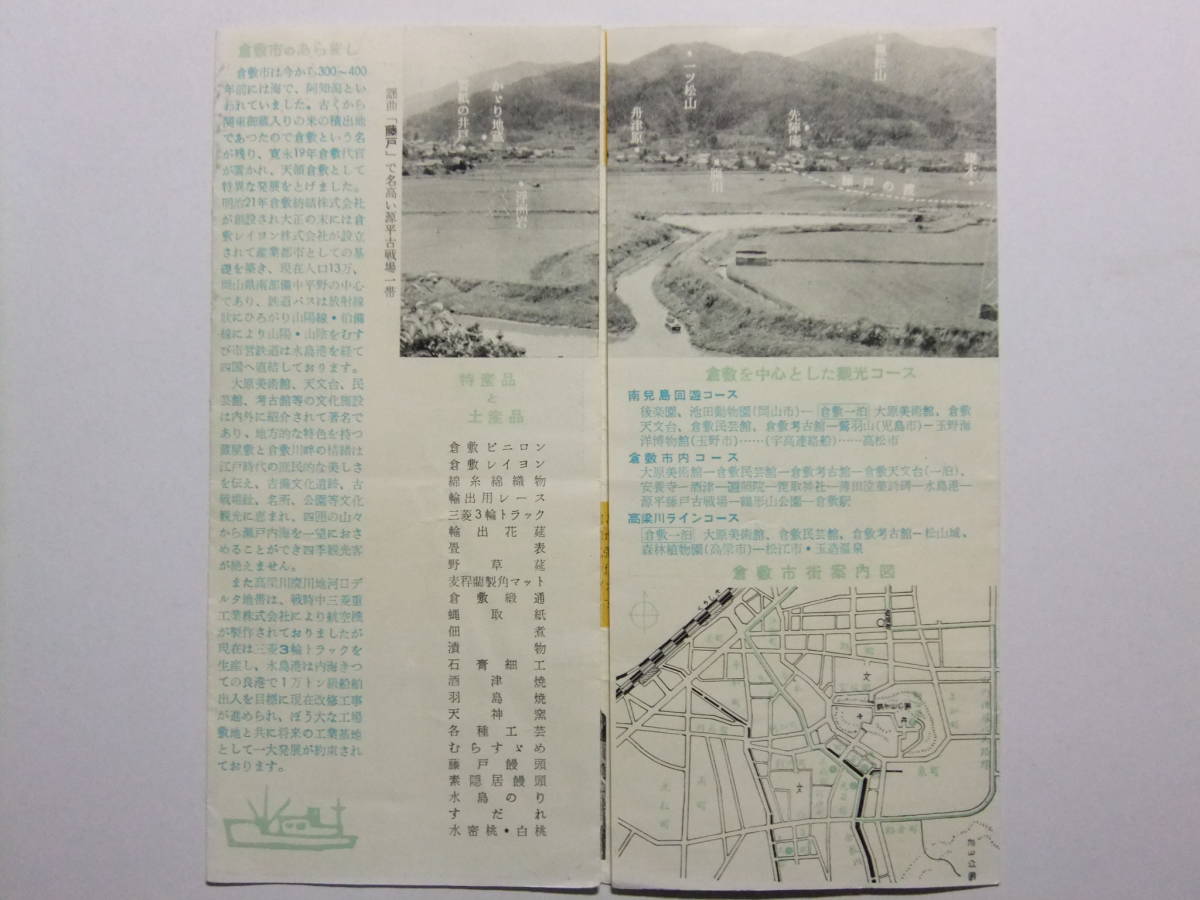 倉敷市のあらまし
倉敷市は今から300〜400
年前には海で、阿知潟とい
われていました。古くから
関東御蔵入りの米の積出地
であつたので倉敷という名
が残り、寛永19年倉敷代官
が置かれ、天領倉敷として
特異な発展をとげました。
明治21年倉敷紡績株式会社
が創設され大正の末には倉
敷レイヨン株式会社が設立
されて産業都市としての基
礎を築き、現在人口13万、
岡山県南部備中平野の中心
であり、鉄道バスは放射線
状にひろがり山陽線・伯備
線により山陽・山陰をむす
び市営鉄道は水島港を経て
四国へ直結しております。
大原美術館、天文台、民
芸館、考古館等の文化施設
は内外に紹介されて著名で
あり、地方的な特色を持つ
蔵屋敷と倉敷川畔の情緒は
江戸時代の庶民的な美しさ
を伝え、吉備文化遺跡、古
戦場趾、名所、公園等文化
観光に恵まれ、四囲の山々
から瀬戸内海を一望におさ
めることができ四季観光客
が絶えません。
また高梁川廃川地河口デ
ルタ地帯は、戦時中三菱重
工業株式会社により航空機
が製作されておりましたが
現在は三菱3輪トラックを
生産し、水島港は内海きつ
ての良港で1万トン級船舶
出入を目標に現在改修工事
が進められ、ぼう大な工場
敷地と共に将来の工業基地
として一大発展が約束され
ております。
謡曲「藤戸」で名高い源平古戦場一帯
かゞり地蔵
浮洲岩
一ツ松山
先陣庵
特産品
と
土産品
倉敷ビニロン
倉敷レイヨン
綿糸綿織物
輸出用レース
三菱3輪トラック
輸出花莚
畳表
野草莚
麦稈蘭製角マット
倉敷緞通
蝿取紙
佃煮
漬物
石膏細工
酒津焼
羽島焼
天神窯
各種工芸
むらすゞめ
藤戸饅頭
素隠居饅頭
水島のり
すだれ
水密桃・白桃
倉敷を中心とした観光コース
南児島回遊コース
後楽園、池田動物園(岡山市)─ 倉敷一泊 大原美術館、倉敷
天文台、倉敷民芸館、倉敷考古館─鷲羽山(児島市)─玉野海
洋博物館(玉野市)……(宇高連絡船)……高松市
倉敷市内コース
大原美術館─倉敷民芸館─倉敷考古館─倉敷天文台(一泊)、
安養寺─酒津─遍照院─熊取神社─薄田泣菫詩碑─水島港─
源平藤戸古戦場─鶴形山公園─倉敷駅
高梁川ラインコース
倉敷一泊 大原美術館、倉敷民芸館、倉敷考古館─松山城、
森林植物園(高梁市)─松江市・玉造温泉
倉敷市街案内図
文
文